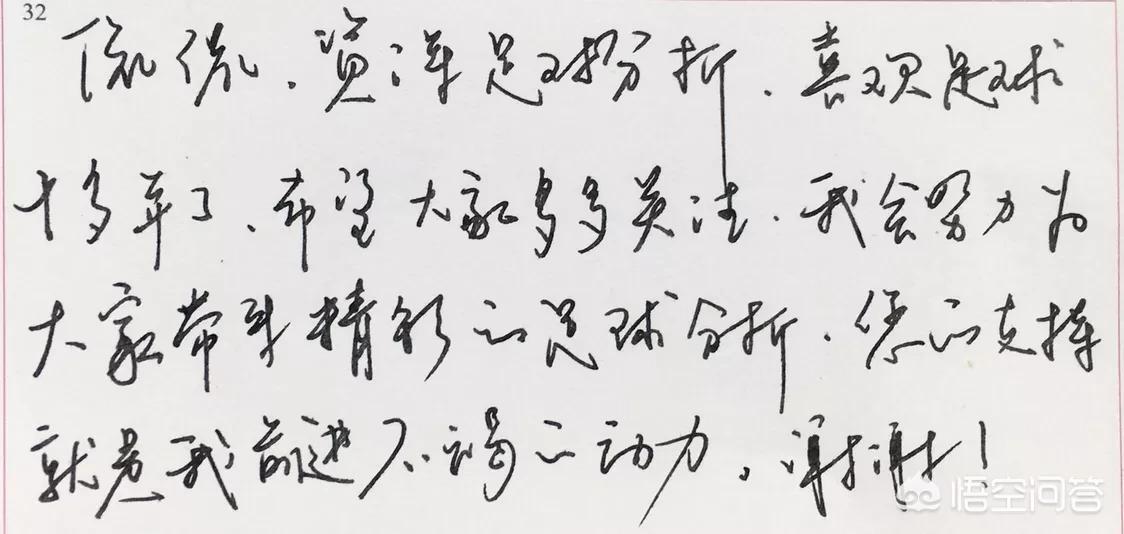 32
侃侃、资深足球分析、喜欢足球
十多年了、希望大家多多关注、我会努力为
大家带来精彩的足球分析、您的支持
就是我前进不竭的动力。谢谢!
悟空问答